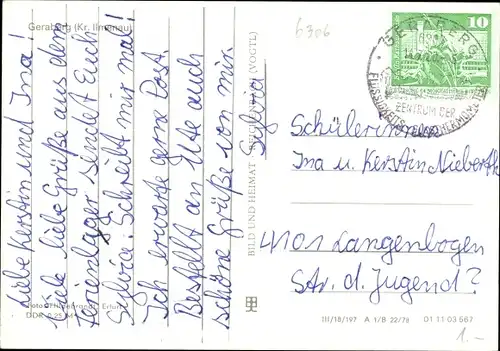 Geraberg (Kr. Ilmenau)
6306
Liebe Kerstin und Ina!
Viele liebe Grüße aus dem
Ferienlager sendet Euch
Sylvia. Schreibt mir mal!
Ich erwarte gern Post.
Bestellt an Ute auch
schöne Grüße von mir.
Sylvia
Foto: Hildebrandt, Erfurt
DDR 0,25 M
BILD UND HEIMAT REICHENBACH (VOGTL)
GERABERG
ZENTRUM DER
10
Schülerinnen
Ina u. Kerstin Nieberth
4101 Langenbogen
Str. d. Jugend 7
III/18/197 A 1/B 22/78 01 11 03 567
1.-